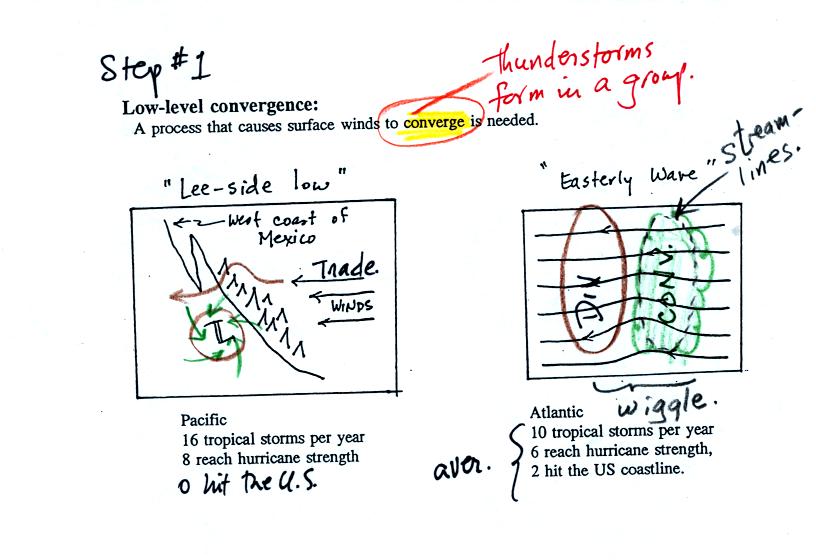 Step #1
thunderstorms
form in a group.
Low-level convergence:
A process that causes surface winds to converge is needed.
stream-
lines.
"Lee-side low"
"Easterly Wave"
West coast of
Mexico
Trade
WINDS
L
DIV
CONV.
wiggle.
Pacific
16 tropical storms per year
8 reach hurricane strength
0 hit the U.S.
Atlantic
10 tropical storms per year
6 reach hurricane strength,
2 hit the US coastline.
aver.